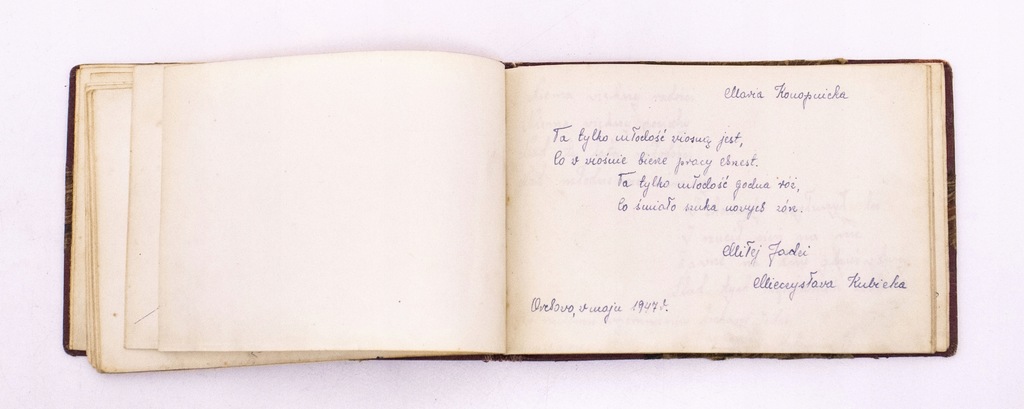 Maria Konopnicka
Ta tylko młodość wiosną jest,
Co w wiośnie bierze pracy chrzest.
Ta tylko młodość godna róż,
Co śmiało szuka nowych zórz.
Miłej Jadzi
Mieczysława Kubicka
w maju 1947 r.